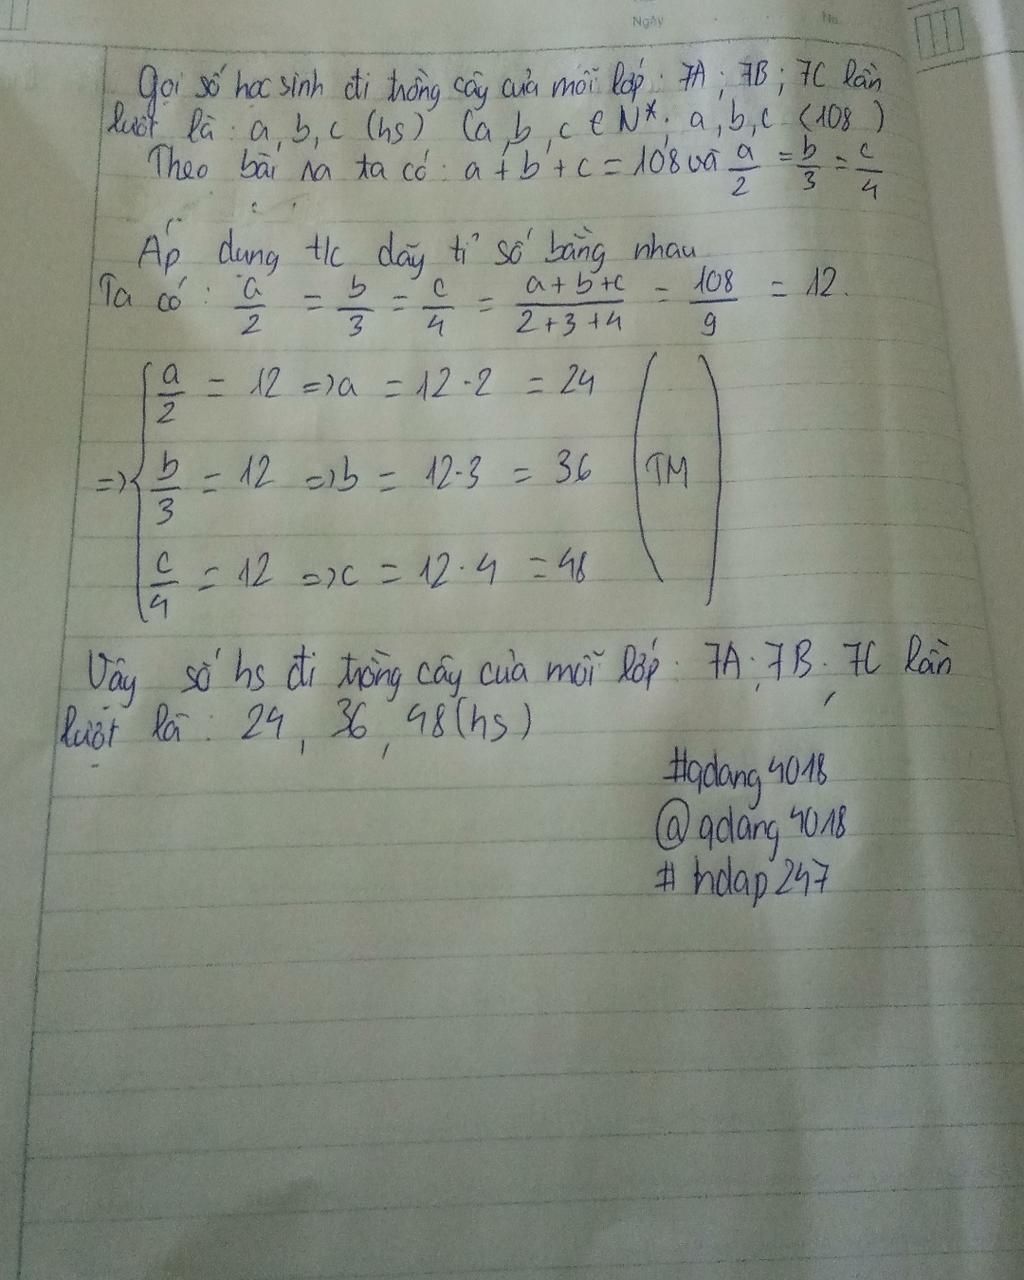 Ngày No.
Gọi số học sinh đi trồng cây của mỗi lớp: 7A; 7B; 7C lần
lượt là: a, b, c (hs) (a, b, c ∈ N*; a, b, c < 108)
Theo bài ra ta có: a + b + c = 108 và a/2 = b/3 = c/4
Áp dụng t/c dãy tỉ số bằng nhau
Ta có: a/2 = b/3 = c/4 = (a+b+c)/(2+3+4) = 108/9 = 12.
a/2 = 12 => a = 12·2 = 24
=> { b/3 = 12 => b = 12·3 = 36 (TM)
c/4 = 12 => c = 12·4 = 48
Vậy số hs đi trồng cây của mỗi lớp: 7A; 7B; 7C lần
lượt là: 24, 36, 48 (hs)
#qdang4018
@qdang4018
# hdap247